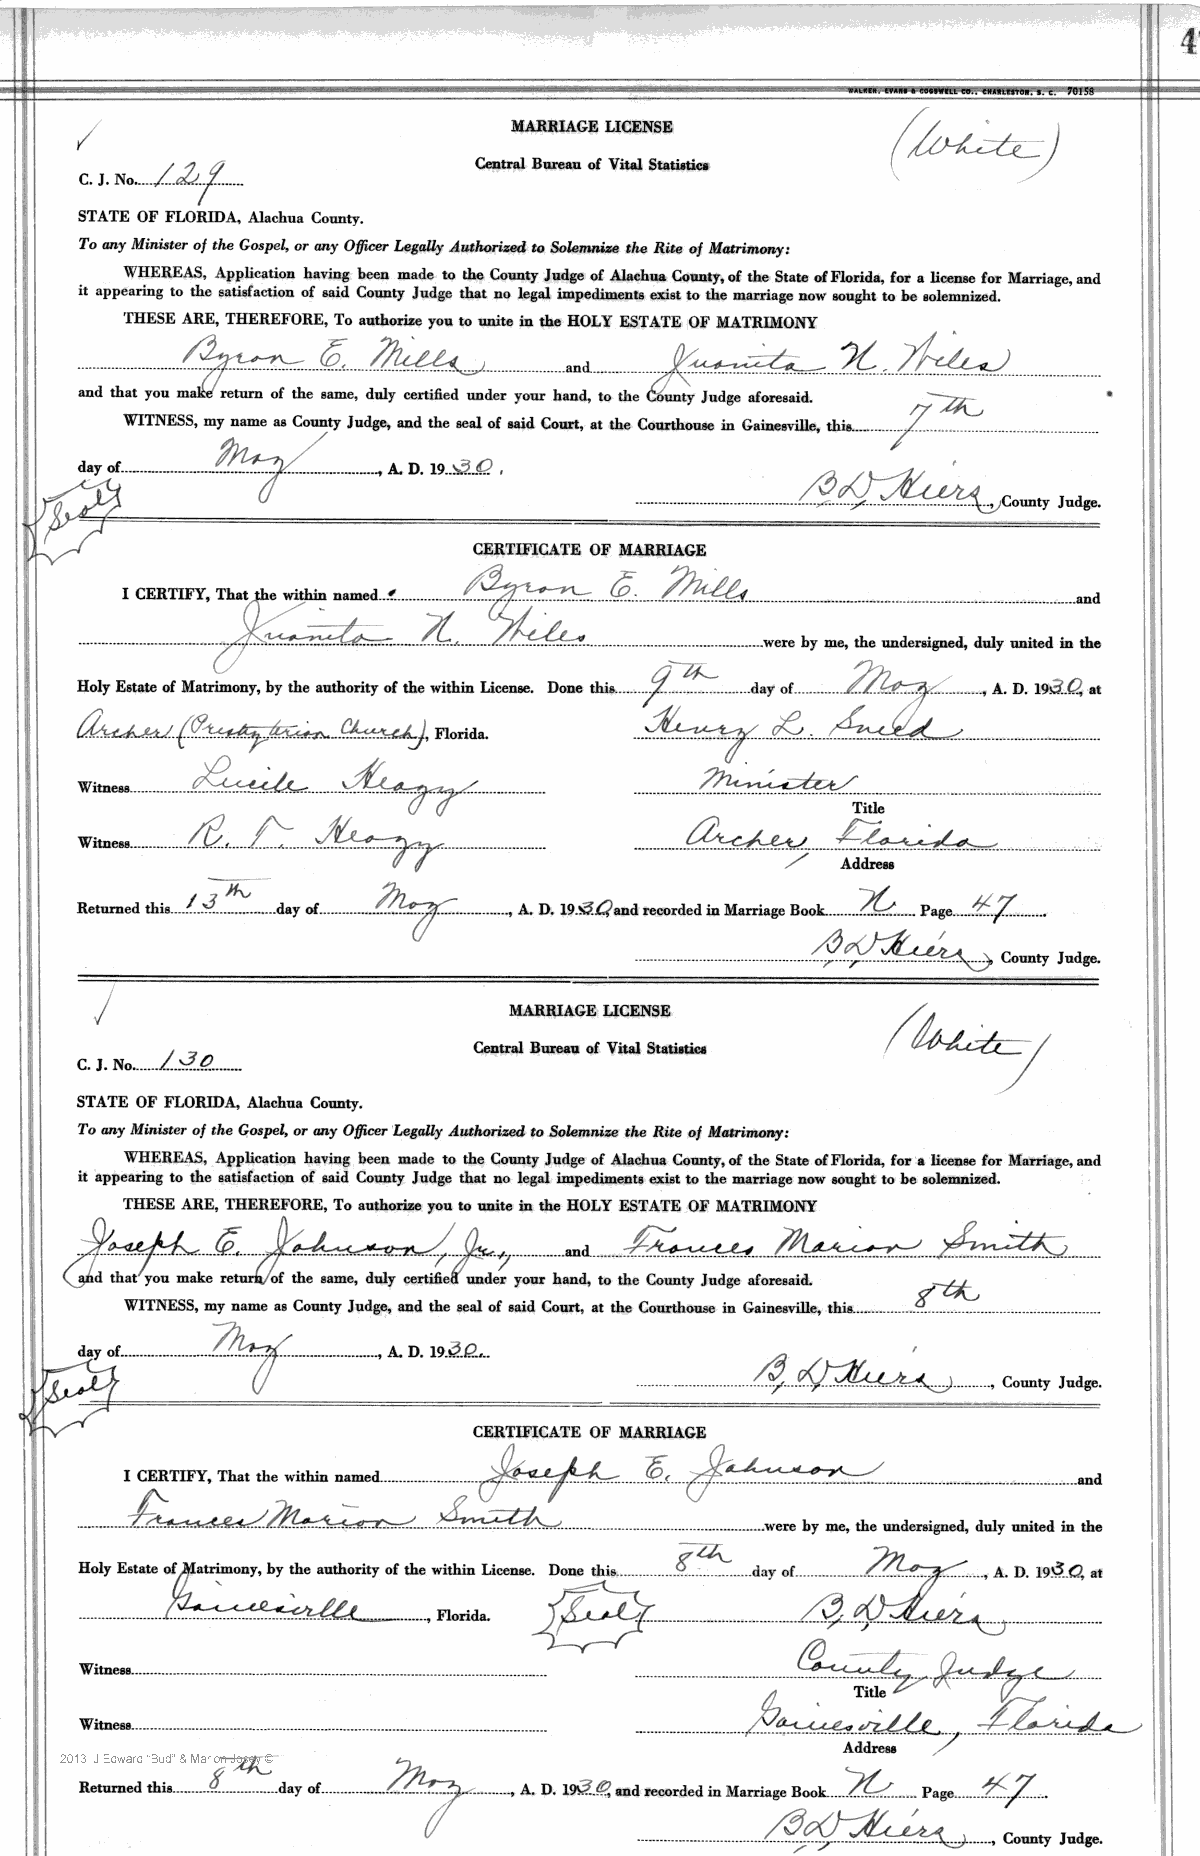 4
WALKER, EVANS & COGSWELL CO., CHARLESTON, S. C. 70158
MARRIAGE LICENSE
(White)
Central Bureau of Vital Statistics
C. J. No. 129
STATE OF FLORIDA, Alachua County.
To any Minister of the Gospel, or any Officer Legally Authorized to Solemnize the Rite of Matrimony:
WHEREAS, Application having been made to the County Judge of Alachua County, of the State of Florida, for a license for Marriage, and
it appearing to the satisfaction of said County Judge that no legal impediments exist to the marriage now sought to be solemnized.
THESE ARE, THEREFORE, To authorize you to unite in the HOLY ESTATE OF MATRIMONY
Byron E. Mills and Juanita N. Wiles
and that you make return of the same, duly certified under your hand, to the County Judge aforesaid.
WITNESS, my name as County Judge, and the seal of said Court, at the Courthouse in Gainesville, this 7th
day of May, A. D. 1930.
(Seal)
B. D. Hiers, County Judge.
CERTIFICATE OF MARRIAGE
I CERTIFY, That the within named Byron E. Mills and
Juanita N. Wiles were by me, the undersigned, duly united in the
Holy Estate of Matrimony, by the authority of the within License. Done this 9th day of May, A. D. 1930, at
Archer (Presbyterian Church), Florida. Henry L. Sneed
Witness Lucile Heagy Minister
Title
Witness R. T. Heagy Archer, Florida
Address
Returned this 13th day of May, A. D. 1930, and recorded in Marriage Book N Page 47.
B. D. Hiers, County Judge.
MARRIAGE LICENSE
(White)
Central Bureau of Vital Statistics
C. J. No. 130
STATE OF FLORIDA, Alachua County.
To any Minister of the Gospel, or any Officer Legally Authorized to Solemnize the Rite of Matrimony:
WHEREAS, Application having been made to the County Judge of Alachua County, of the State of Florida, for a license for Marriage, and
it appearing to the satisfaction of said County Judge that no legal impediments exist to the marriage now sought to be solemnized.
THESE ARE, THEREFORE, To authorize you to unite in the HOLY ESTATE OF MATRIMONY
Joseph E. Johnson, Jr., and Frances Marion Smith
and that you make return of the same, duly certified under your hand, to the County Judge aforesaid.
WITNESS, my name as County Judge, and the seal of said Court, at the Courthouse in Gainesville, this 8th
day of May, A. D. 1930.
(Seal)
B. D. Hiers, County Judge.
CERTIFICATE OF MARRIAGE
I CERTIFY, That the within named Joseph E. Johnson and
Frances Marion Smith were by me, the undersigned, duly united in the
Holy Estate of Matrimony, by the authority of the within License. Done this 8th day of May, A. D. 1930, at
Gainesville, Florida. (Seal) B. D. Hiers
Witness County Judge
Title
Witness Gainesville, Florida
Address
2013 J Edward "Bud" & Marion ©
Returned this 8th day of May, A. D. 1930, and recorded in Marriage Book N Page 47.
B. D. Hiers, County Judge.